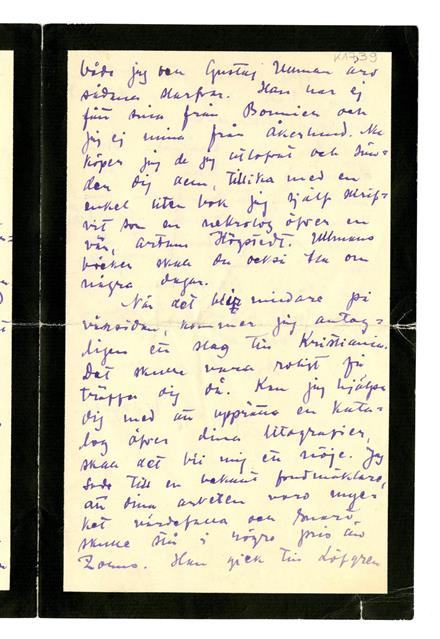 K1739
både jag och Gustaf Ullman äro
sådana starfvar. Han har ej
fått sina från Bonnier och
jag ej mina från Åkerlund. Nu
köper jag de jag utlofvat och sän-
der dig dem, tillika med en
enkel liten bok jag själf skrif-
vit som en nekrolog öfver en
vän, Högstedt. Ullmans
böcker skall du också få om
några dagar.
När det blir mindre på
växsidan, kommer jag antag-
ligen ett slag till Kristiania.
Det skulle vara roligt få
träffa dig då. Kan jag hjälpa
dig med att upprätta en kata-
log öfver dina litografier,
skall det bli mig ett nöje. Jag
sade till en bekant fondmäklare,
att dina arbeten voro myc-
ket värdefulla och snart
skulle stå i högre pris än
Zorns. Han gick till Löfgren